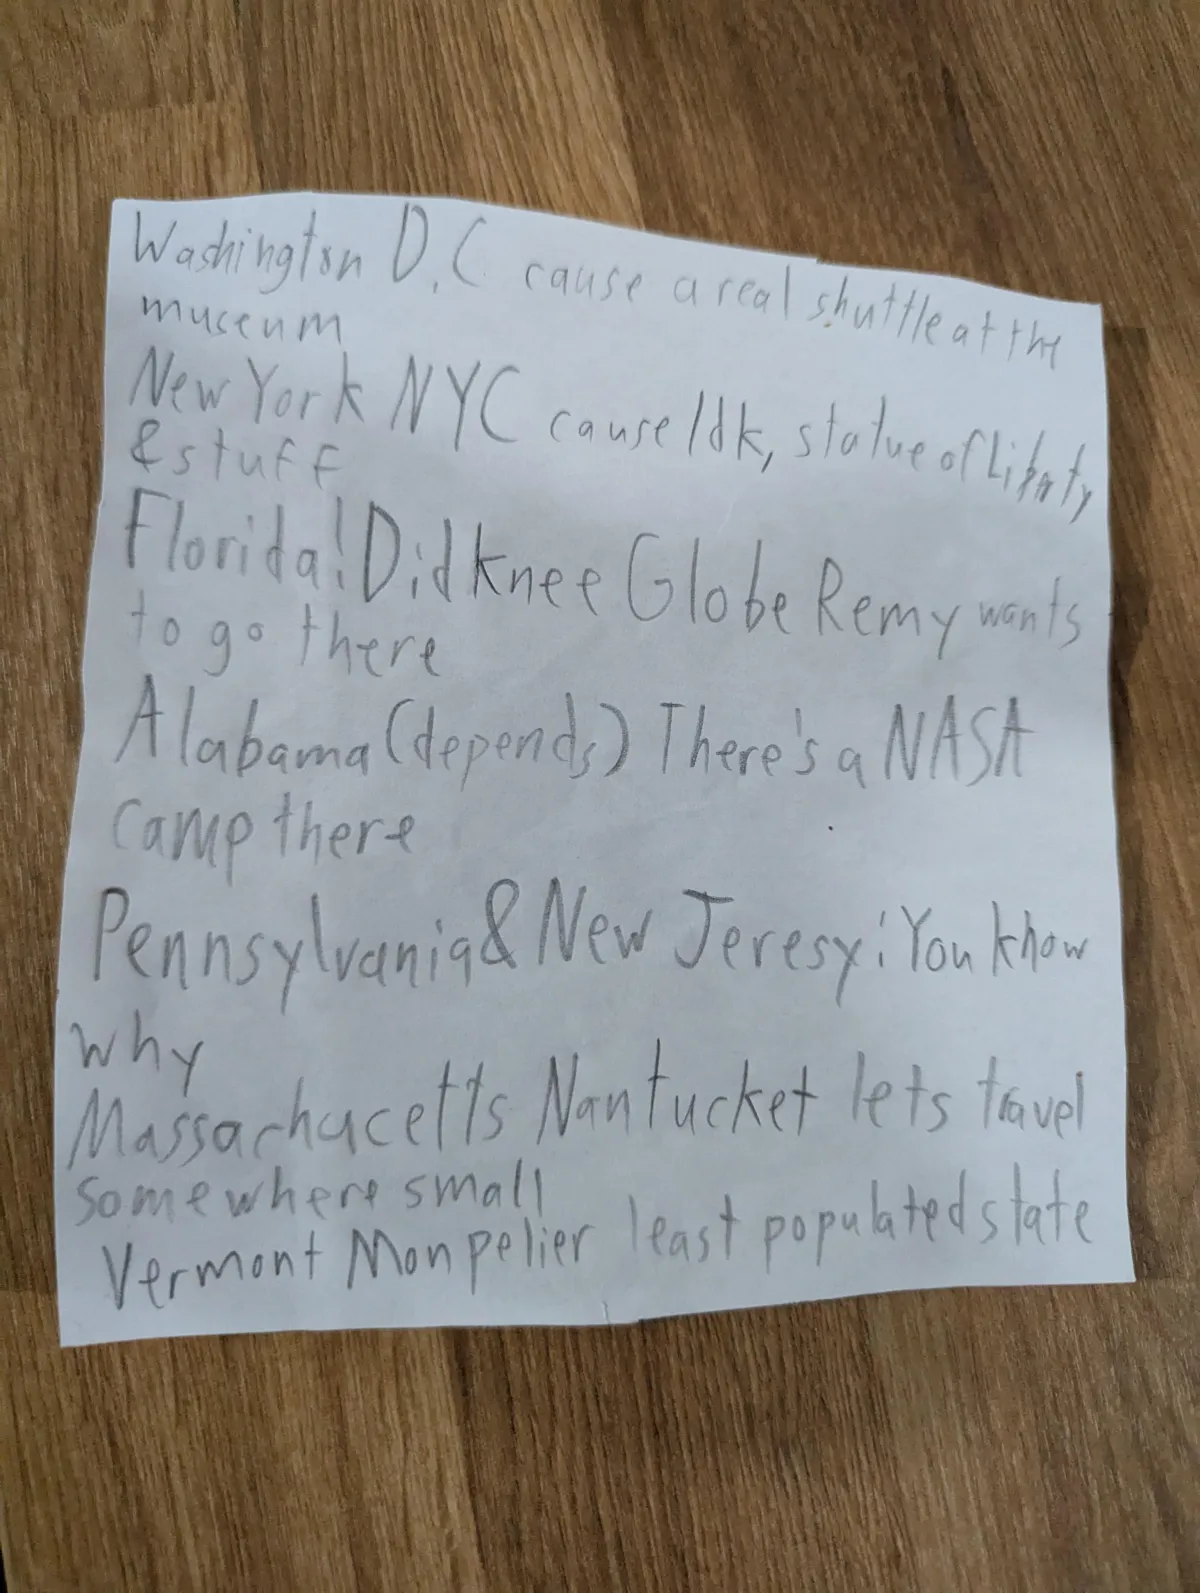 Washington D.C cause a real shuttle at the
museum
New York NYC cause Idk, statue of Liberty
& stuff
Florida! Did knee Globe Remy wants
to go there
Alabama (depends) There's a NASA
camp there
Pennsylvania & New Jeresy: You know
why
Massachucetts Nantucket lets travel
somewhere small
Vermont Monpelier least populated state